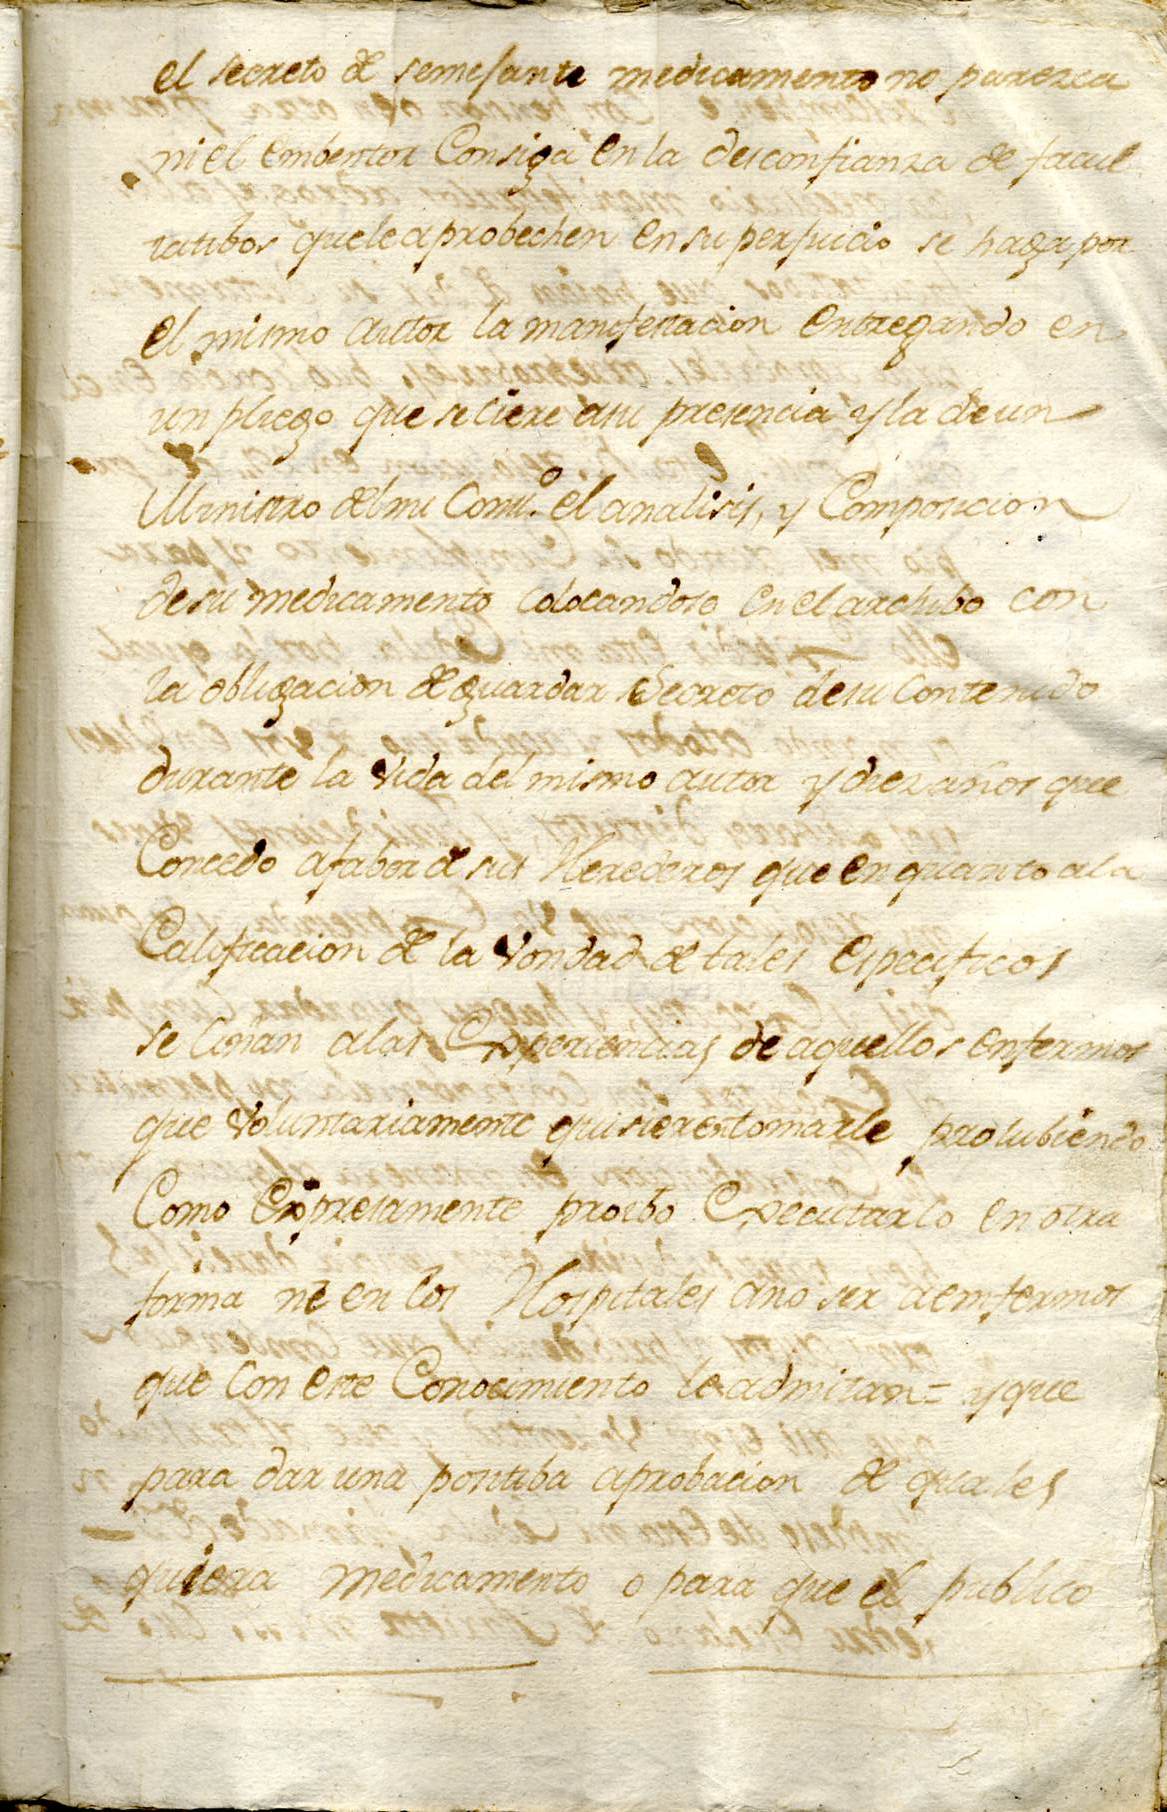 el secreto de semejante medicamento no parezca
ni el embentor Consiga en la desconfianza de facul
tatibos que le aprobechen en su perjuicio se haga por
el mismo autor la manifestacion entregando en
un pliego que se ciere a su presencia y la de un
Ministro del mi Conso. el analisis, y Composicion
de su medicamento colocandoso en el archibo con
la obligacion de guardar Secreto de su Contenido
durante la vida del mismo autor y diez años que
Concedo a fabor de sus Herederos que en quanto a la
Calificacion de la vondad de tales especificos
se a las Experiencias de aquellos enfermos
que voluntariamente quisieren tomarle prohibiendo
Como Expresamente proibo Executarlo en otra
forma ni en los Hospitales a no ser a emfermos
que Con este Conocimiento le admitan = y que
para dar una positiba aprobacion de quales
quiera medicamento o para que el publico